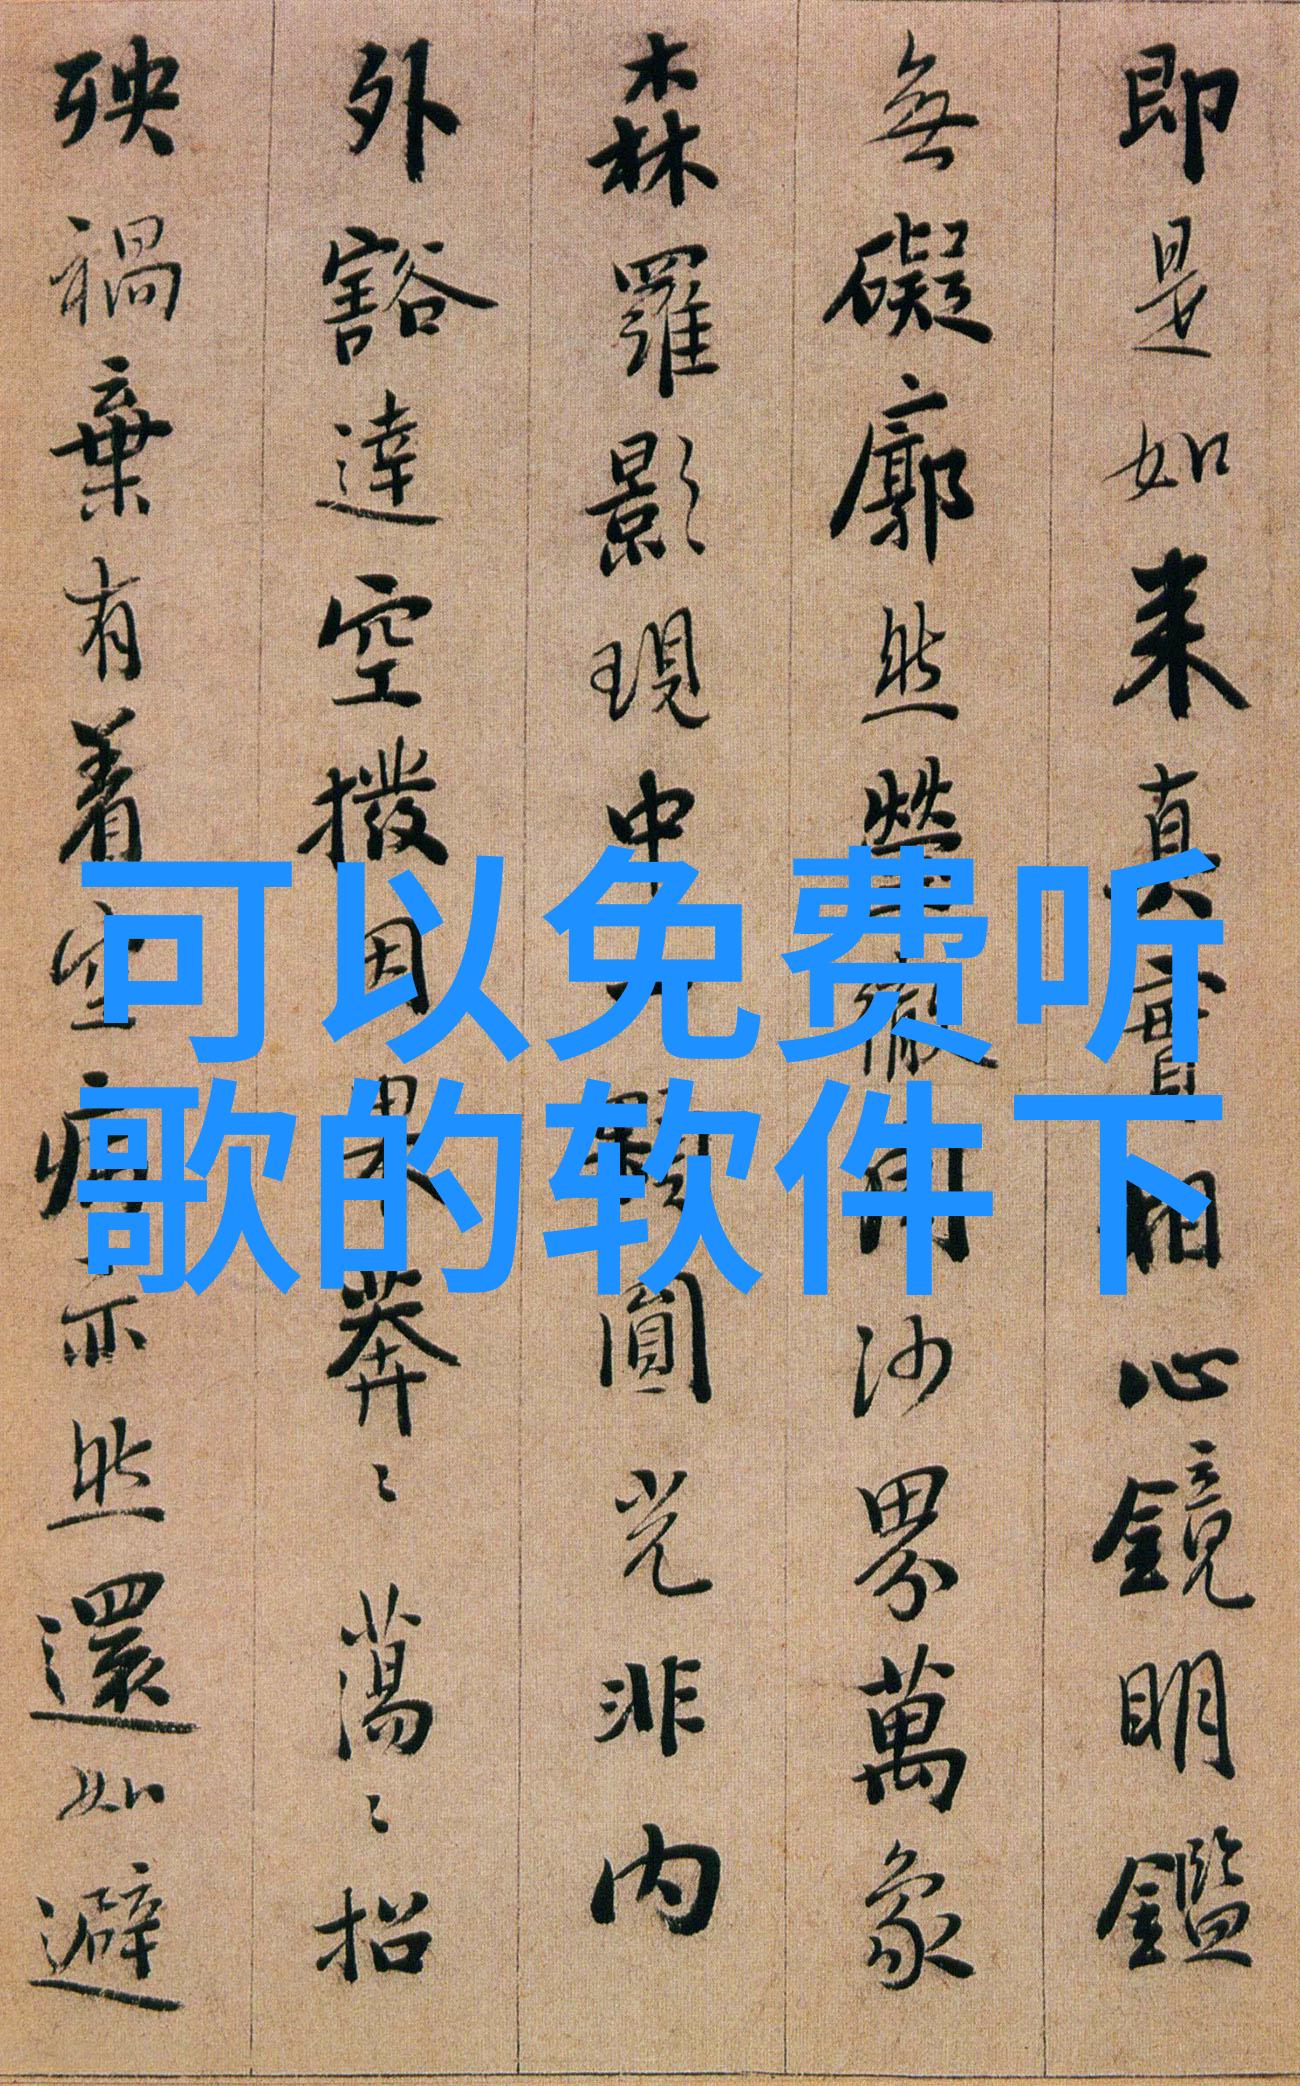 可以免费听
歌的软件下
即是如来真實相心鏡明鑑
無礙廓然瑩徹周沙界萬象
森羅影現中一顆圓光非内
外豁達空撥因果莽〻蕩〻招
殃禍棄有着空病亦然還如避